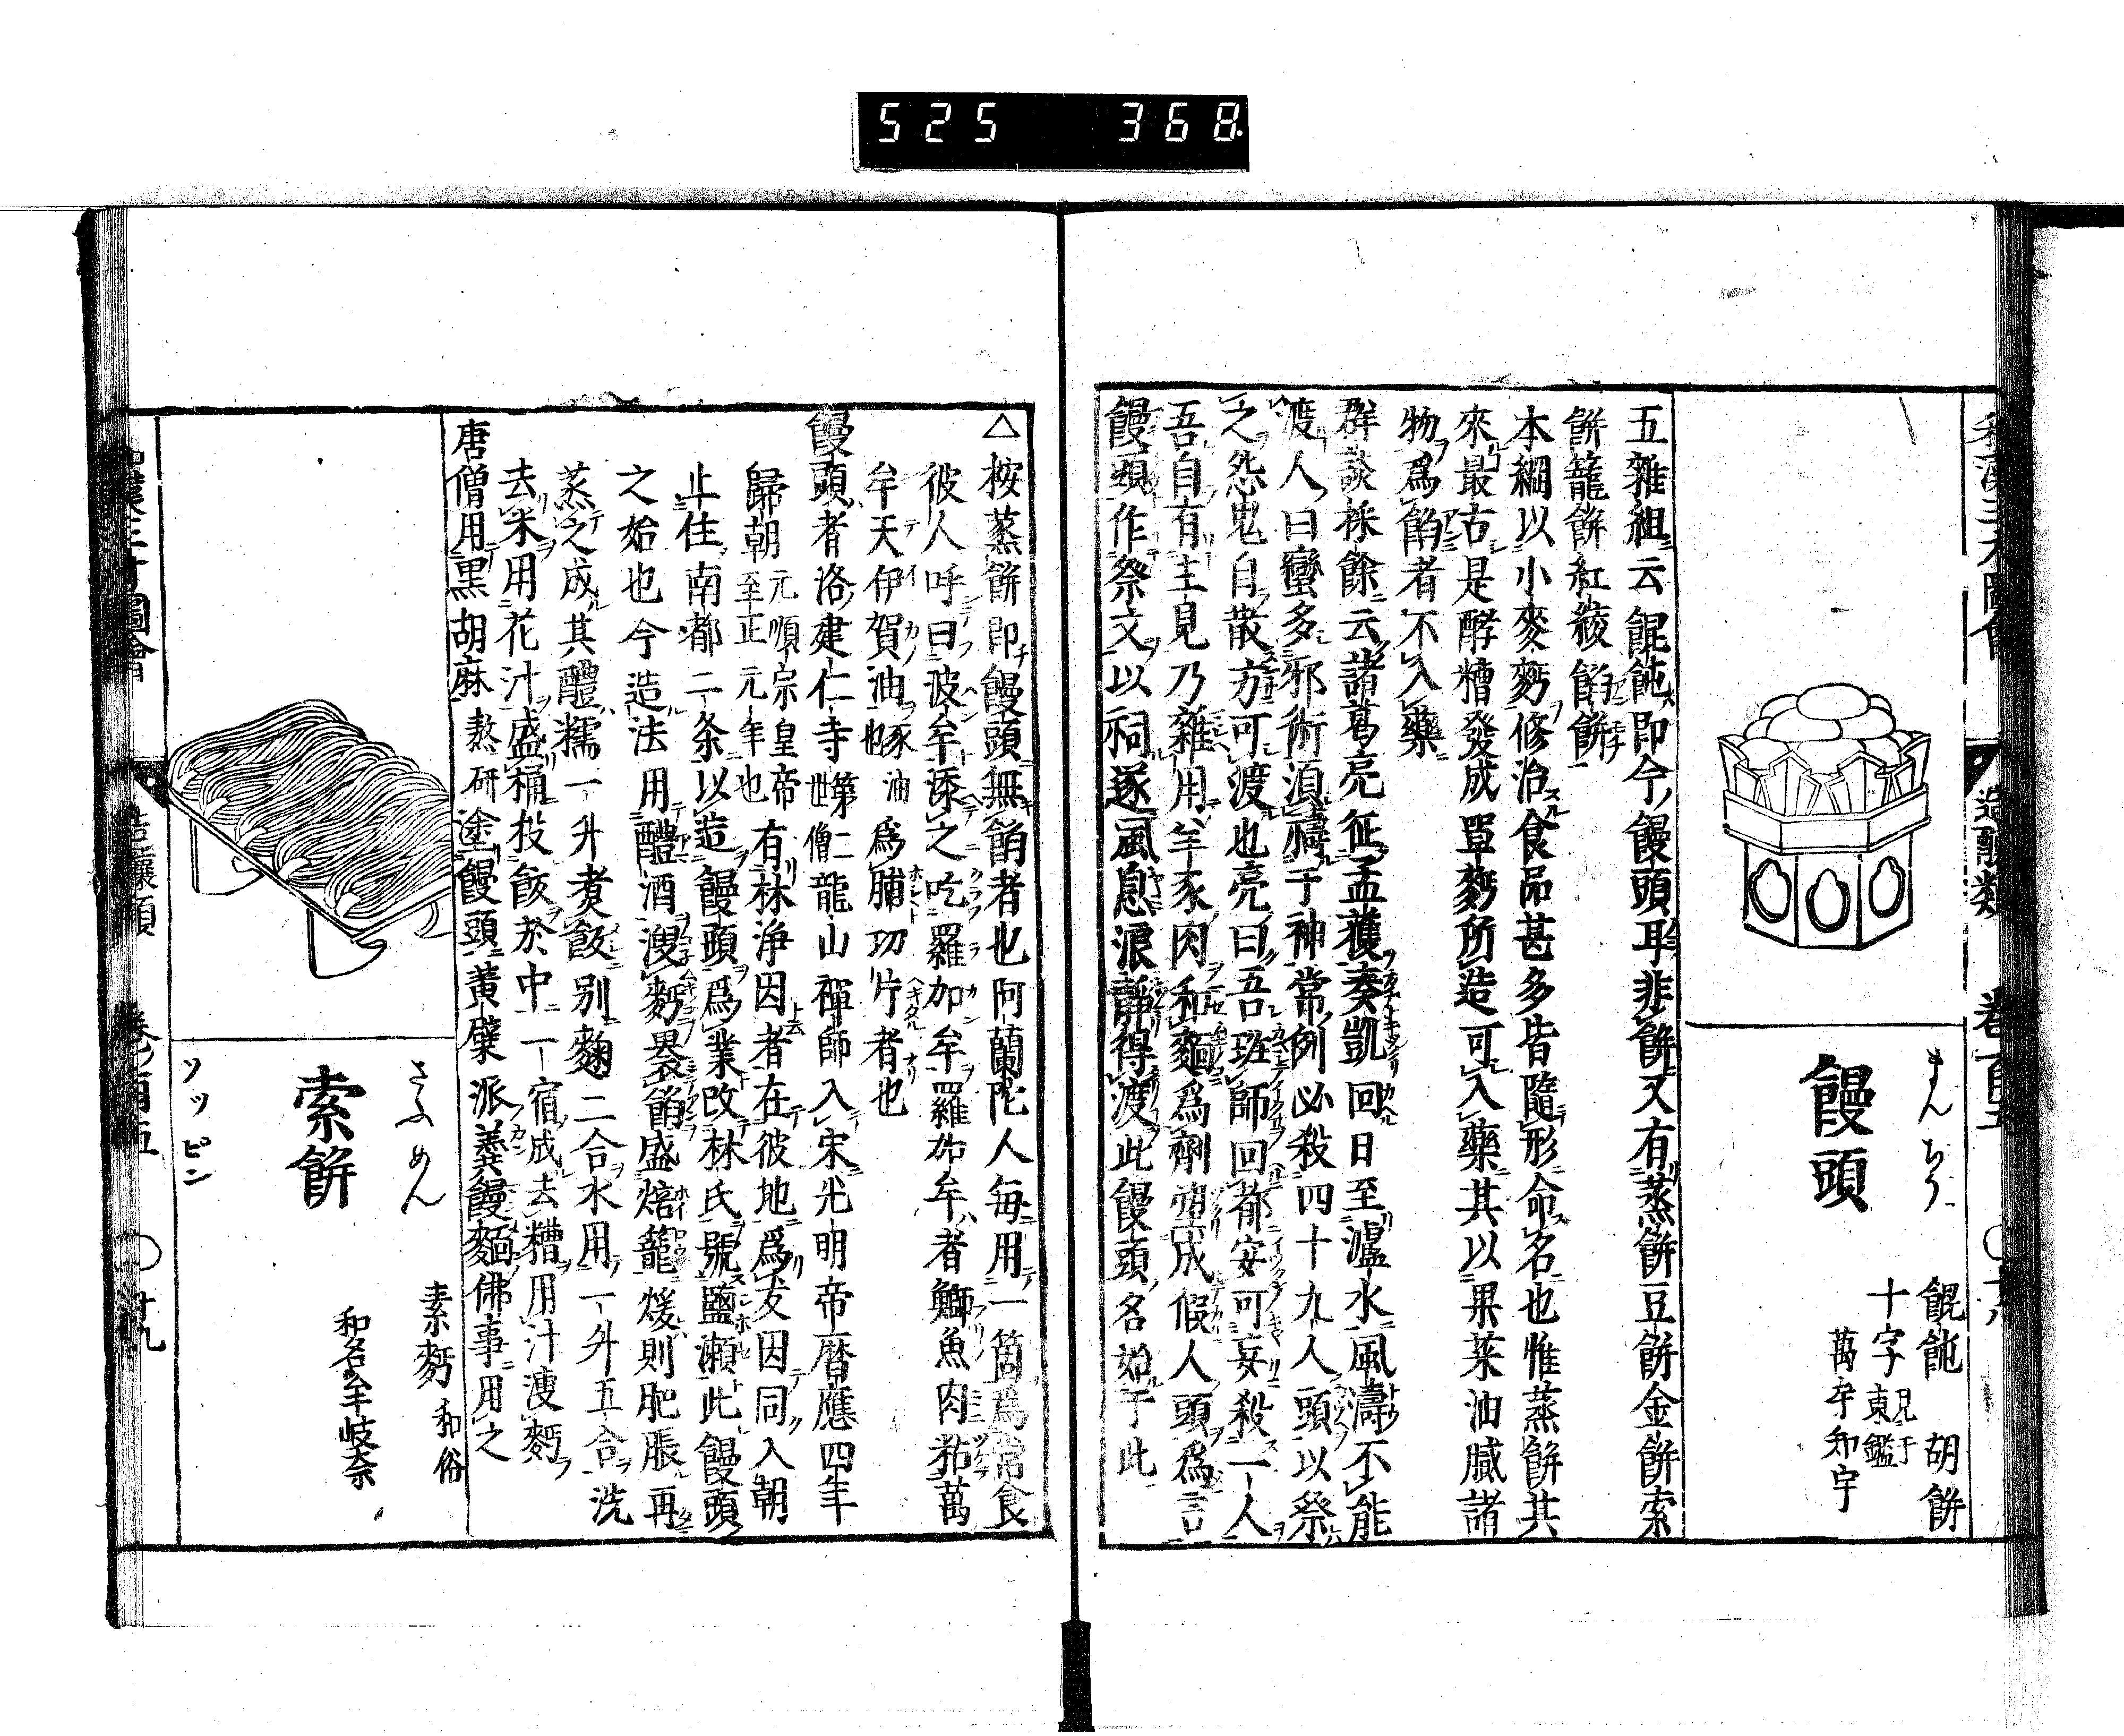 525 368
造釀類
まんぢう
饅頭
餛飩 胡餅
十字 見于東鑑
萬牟知宇
五雜組云餛飩即今饅頭耳非餅又有蒸餅豆餅金餅索
餅籠餅紅綾餅餤餅
本綱以小麥麪修治食品甚多皆隨形命名也惟蒸餅其
來最古是酵糟發成單麪所造可入藥其以果菜油膩諸
物爲餡者不入藥
群談採餘云諸葛亮征孟獲奏凱回日至瀘水風濤不能
渡人曰蠻多邪術須禱于神常例必殺四十九人頭以祭
之怨鬼自散方可渡也亮曰吾班師回都安可妄殺一人
吾自有主見乃雜用羊豕肉和麵爲劑塑成假人頭爲言
饅頭作祭文以祠遂風息浪靜得渡此饅頭名始于此
△按蒸餅即饅頭無餡者也阿蘭陀人毎用一箇爲常食
彼人呼曰波牟添之吃羅加牟羅加牟者鰤魚肉粘萬
牟天伊賀油豕油也爲脯切片者也
饅頭者洛建仁寺第二世僧龍山禪師入宋光明帝暦應四年
歸朝元順宗皇帝至正元年也有林淨因者在彼地爲友因同入朝
止住南都二条以造饅頭爲業改林氏號鹽瀬此饅頭
之始也今造法用醴酒溲麪裹餡盛焙籠煖則肥脹再
蒸之成其醴糯一升煮飯別麹二合水用一升五合洗
去米用花汁盛桶投飯於中一宿成去糟用汁溲麪
唐僧用黒胡麻熬研塗饅頭黄檗派羮饅麵佛事用之
さふめん
索餅
ソッピン
素麪 和俗
和名牟岐奈